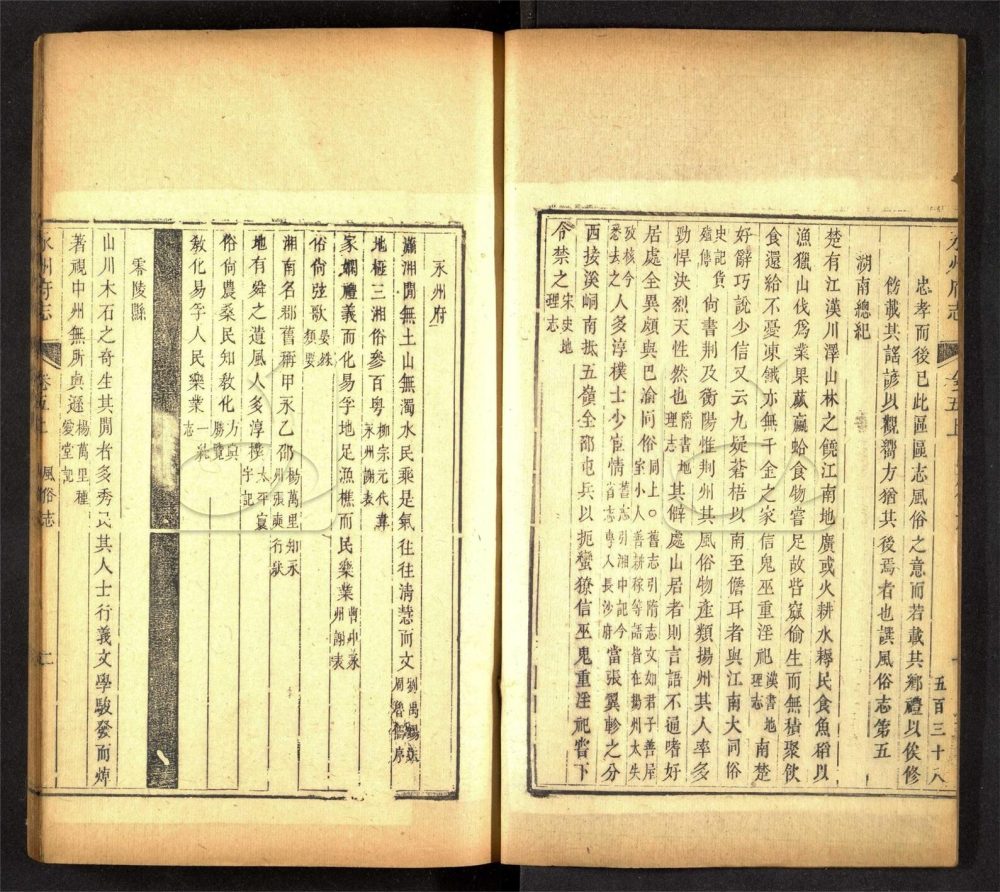 永州府志
五百三十八
忠孝而後已此區區志風俗之意而若載其鄉禮以俟修
倣載其謠諺以觀嚮方猶其後焉者也譔風俗志第五
湖南總紀
楚有江漢川澤山林之饒江南地廣或火耕水耨民食魚稻以
漁獵山伐爲業果蓏蠃蛤食物嘗足故呰窳偷生而無積聚飲
食還給不憂凍餓亦無千金之家信鬼巫重淫祀漢書地理志南楚
好辭巧說少信又云九疑蒼梧以南至儋耳者與江南大同俗
史記貨殖傳尙書荆及衡陽惟荆州其風俗物產類揚州其人率多
勁悍決烈天性然也隋書地理志其僻處山居者則言語不通嗜好
居處全異頗與巴渝同俗同上〇舊志引隋志文如君子善居室小人善耕稼等語皆在揚州大失攷核今
悉去之人多淳樸士少宦情舊志引湘中記今省志專入長沙府當張翼軫之分
西接溪峒南抵五嶺全邵屯兵以扼蠻獠信巫鬼重淫祀嘗下
令禁之宋史地理志
永州府
瀟湘間無土山無濁水民乘是氣往往淸慧而文劉禹錫送周魯儒序
地極三湘俗參百粤柳宗元代韋永州謝表
家嫻禮義而化易孚地足漁樵而民樂業曹中永州謝表
俗尙弦歌晏殊類要
湘南名郡舊稱甲永乙邵楊萬里知永州張奭行狀
地有舜之遺風人多淳樸太平寰宇記
俗尙農桑民知敎化方輿勝覽
敎化易孚人民樂業一統志
零陵縣
山川木石之奇生其間者多秀民其人士行義文學駿發而焯
著視中州無所與遜楊萬里種愛堂記
永州府志
卷五上
風俗志
二